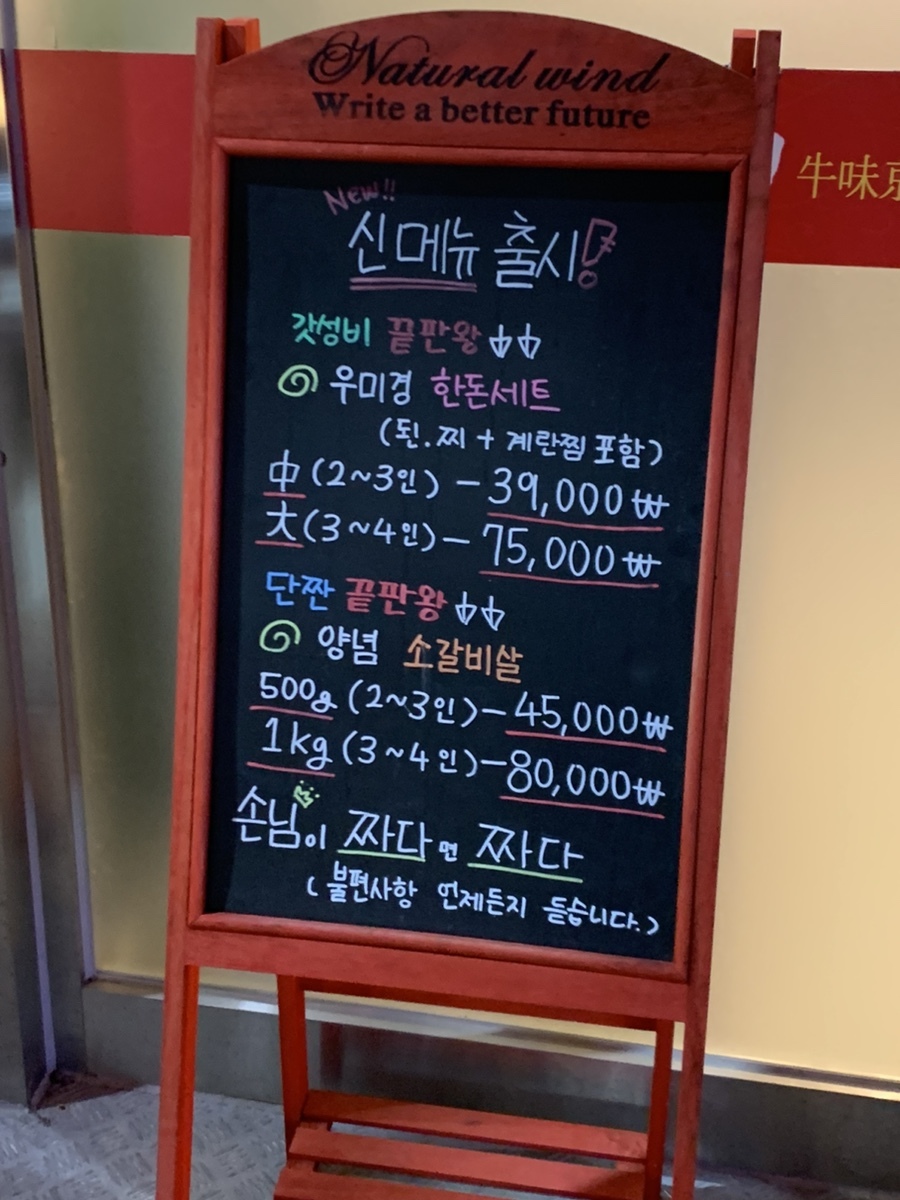 Natural wind
Write a better future
牛味京
New!!
신메뉴 출시!
갓성비 끝판왕↓↓
우미경 한돈세트
(된.찌 + 계란찜 포함)
中 (2~3인) - 39,000₩
大 (3~4인) - 75,000₩
단짠 끝판왕↓↓
양념 소갈비살
500g (2~3인) - 45,000₩
1kg (3~4인) - 80,000₩
손님이 짜다면 짜다
(불편사항 언제든지 듣습니다.)